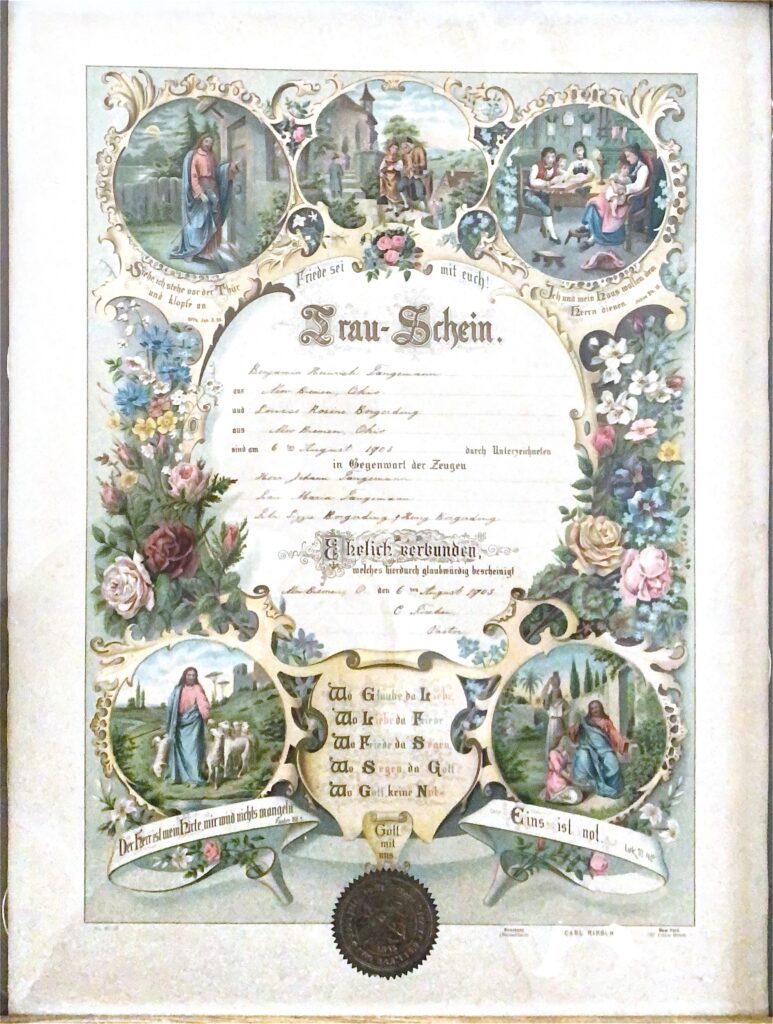 Siehe ich stehe vor der Thür
und klopfe an
Friede sei mit euch!
Ich und mein Haus wollen dem
Herrn dienen.
Trau-Schein.
Benjamin Heinrich Langemann
aus New Bremen, Ohio
und Louise Rosine Borgerding
aus New Bremen, Ohio
sind am 6 ten August 1903 durch Unterzeichneten
in Gegenwart der Zeugen
Herr Johann Langemann
Maria Langemann
Lizzie Borgerding & Henry Borgerding
Ehelich verbunden,
welches hierdurch glaubwürdig bescheinigt
New Bremen O. den 6 ten August 1903
C
Pastor
Wo Glaube, da Liebe,
Wo Liebe da Friede
Wo Friede da Segen,
Wo Segen, da Gott
Wo Gott, keine Noth.
Der Herr ist mein Hirte, mir wird nichts mangeln
Eins ist not.
Luk. 10, 42
Gott
mit
uns
CARL HIRSCH
New York